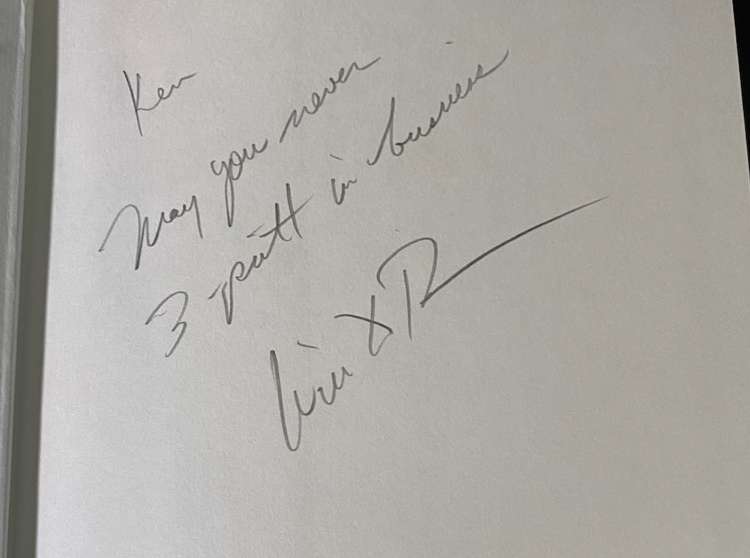 Ken
May you never
3-putt in business